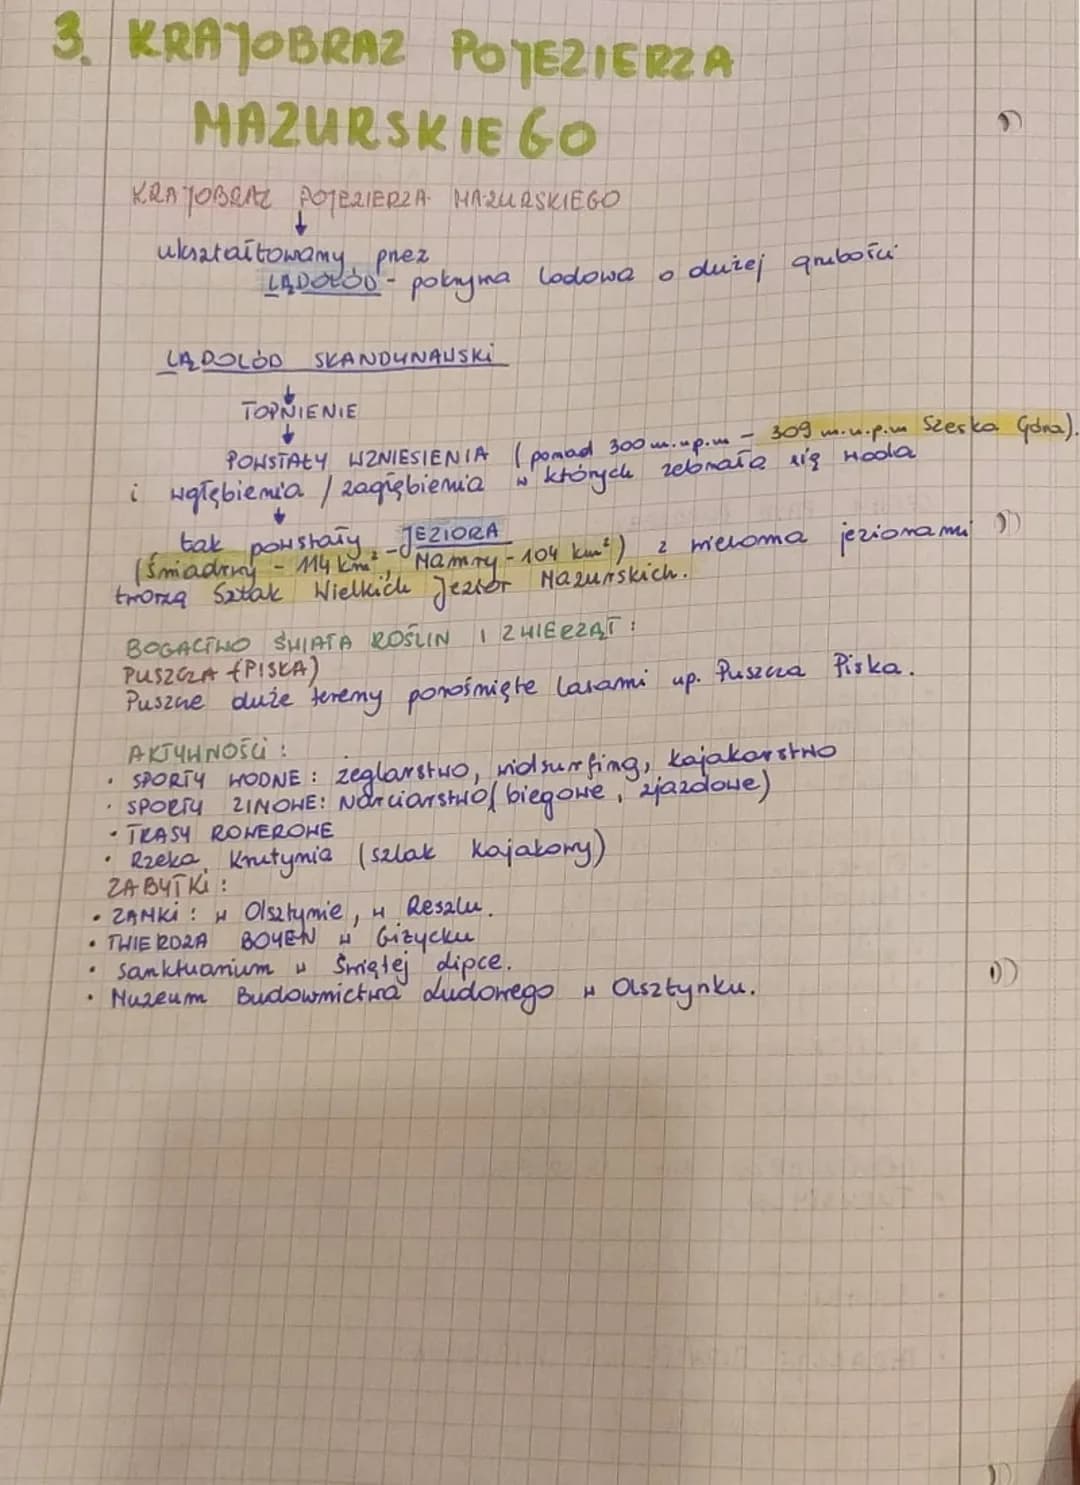 3. KRAJOBRAZ POJEZIERZA
MAZURSKIEGO
KRAJOBRAZ POJEZIERZA MAZURSKIEGO
↓
ukształtowany przez
LĄDOLÓD - pokrywa lodowa o dużej grubości
LĄDOLÓD SKANDYNAWSKI
↓
TOPNIENIE
↓
POWSTAŁY WZNIESIENIA (ponad 300 m.n.p.m - 309 m.n.p.m Szeska Góra).
i wgłębienia / zagłębienia w których zebrała się woda
↓
tak powstały JEZIORA
(Śniadrwy - 114 km², - Mamry - 104 km²) z wieloma jeziorami
tworzą Szlak Wielkich Jezior Mazurskich.
BOGACTWO ŚWIATA ROŚLIN I ZWIERZĄT:
PUSZCZA (PISKA)
Puszcze duże tereny porośnięte lasami np. Puszcza Piska.
AKTYWNOŚCI:
• SPORTY WODNE: żeglarstwo, widsurfing, kajakarstwo
• SPORTY ZIMOWE: Narciarstwo (biegowe, zjazdowe)
• TRASY ROWEROWE
• Rzeka Krutynia (szlak kajakowy)
ZABYTKI:
• ZAMKI: w Olsztynie, w Reszlu.
• TWIERDZA BOYEN w Giżycku
• Sanktuarium w Świętej Lipce.
• Muzeum Budownictwa Ludowego w Olsztynku.